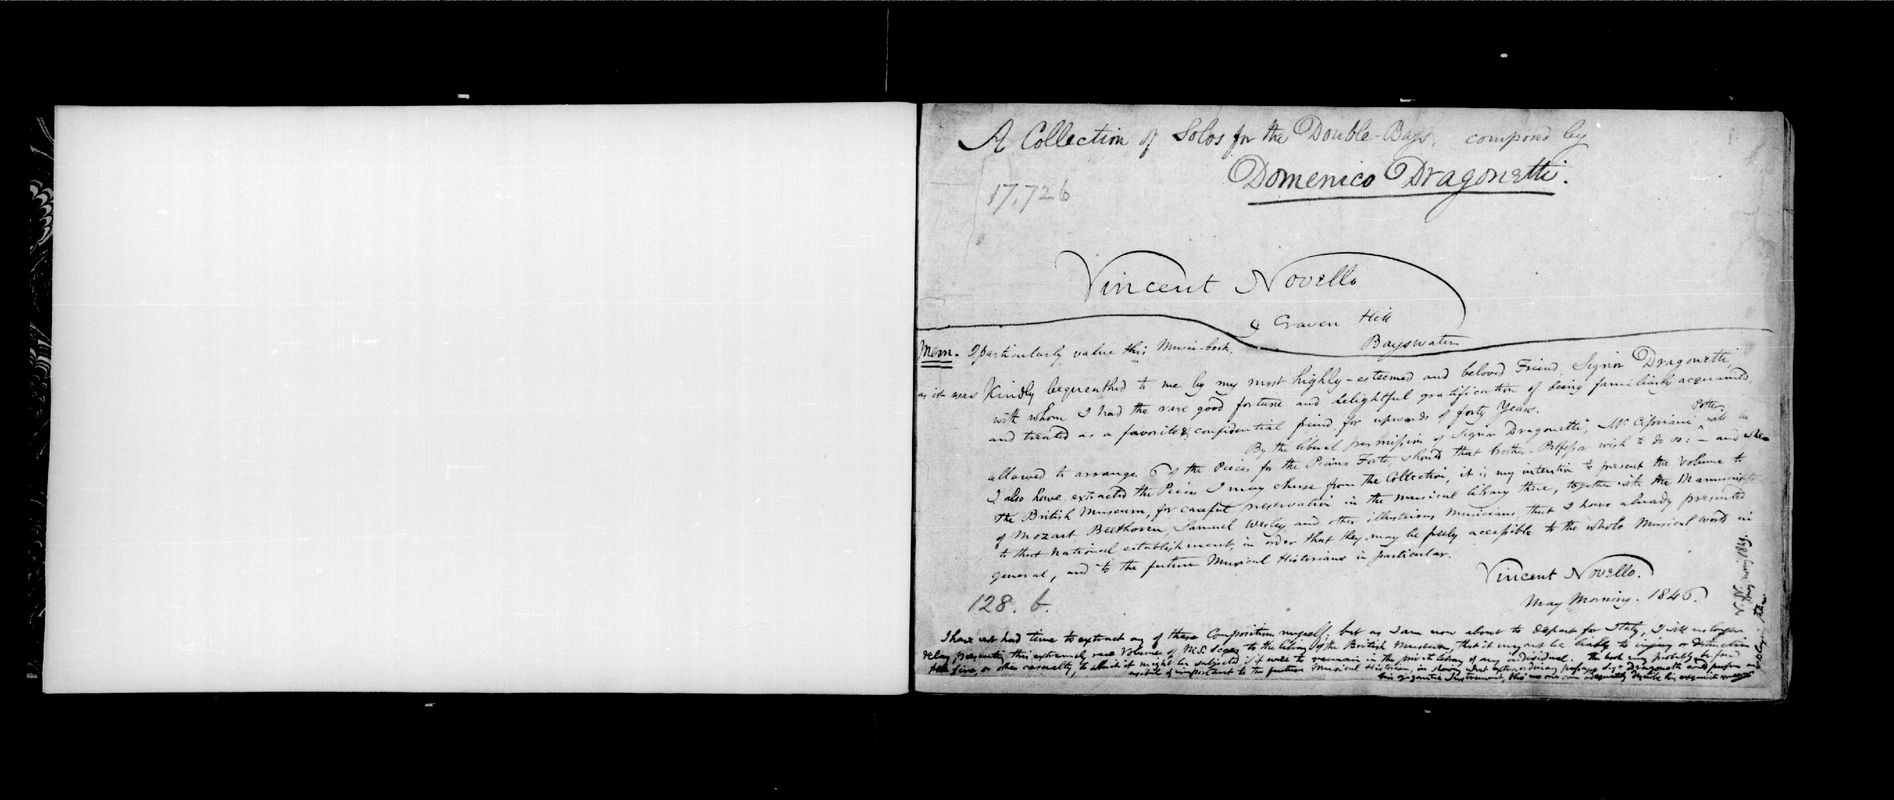 A Collection of Solos for the Double-Bass, composed by
Domenico Dragonetti.
17,726
Vincent Novello
9 Craven Hill
Bayswater
Mem. I particularly value this Music-book,
as it was kindly bequeathed to me by my most highly-esteemed and beloved Friend, Signor Dragonetti,
with whom I had the rare good fortune and delightful gratification of being familiarly acquainted,
and treated as a favorite & confidential friend for upwards of forty Years.
By the liberal permission of Signor Dragonetti, Mr. Cipriani Potter will be
allowed to arrange 6 of the Pieces for the Piano Forte, should that brother-Professor wish to do so: – and when
I also have extracted the Pieces I may chuse from the Collection, it is my intention to present the Volume to
the British Museum, for careful preservation in the musical library there, together with the Manuscripts
of Mozart, Beethoven, Samuel Wesley, and other illustrious Musicians, that I have already presented
to that national establishment, in order that they may be freely accessible to the whole Musical world in
general, and to the future Musical Historians in particular.
Vincent Novello.
May Morning. 1846
128. b.
I have not had time to extract any of these Compositions myself; but as I am now about to depart for Italy, I will no longer
delay presenting this extremely rare Volume of M.S. Scores to the library of the British Museum, that it may not be liable to injury or destruction
from fire, or other casualty, to which it might be subjected if it were to remain in the private library of any individual. The book may probably be found
useful & important to the future Musical Historian, in shewing what extraordinary passages Sigr. Dragonetti could perform on
his gigantic Instrument, tho' no one can adequately describe his exquisite manner
of playing them.
V. N.